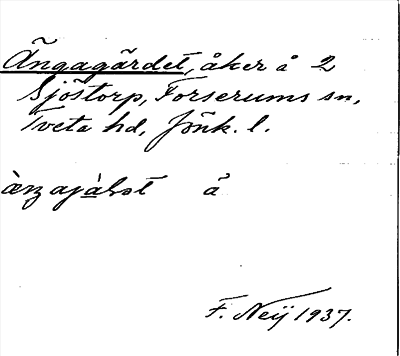 Ängagärdet, åker å 2
Sjöstorp, Forserums sn,
Tveta hd, Jönk. l.
å
F. Neij 1937.